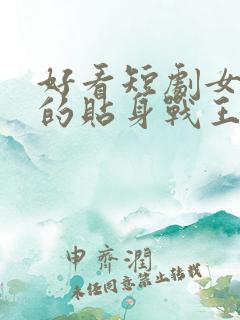 好看短劇女
的貼身戰王
申齊潤
未任同意禁止转载